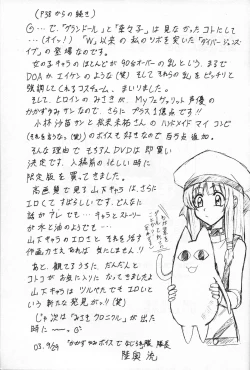 (P38からの続き)
G…で、"グランドール"と"華々子"は見なかったコトにして
…(オイッ!) "W"以来の私のツボを突いた"ダイバージェンス・
イブ"の登場なのです。
女の子キャラのほとんどが90台オーバーの乳という、まるで
DOAかエイケンのような(笑) そしてそれらの乳をピッチリと
強調してくれるコスチューム、まいりました。
そして、ヒロインのみさきが、Myフェゲリット声優の
かかずゆみサンなので、さらに プラス1億点です!!
小林沙苗サンと永未未祐サンの ハンドメイド マイ コンビ
(それを言うなっ(笑))のボイスも好きなので 百万点追加。
そんな理由で もちろんDVDは即買い
決定です。入稿前の忙しい時に
限定版を買ってきました。
高画質で見る山下キャラは、さらに
エロくてすばらしいです。どんなに
話がアレでも…、キャラとストーリー
が水と油のようでも…
山下キャラのエロさと それを活す
作画力さえあれば 気にしません!!
あと、観てるうちに だんだんと
コトコがお気に入りになってきました
山下キャラは ツルペタでも エロいと
いう 新たな発見がッ!!(笑)
じゃ次は「みさきクロニクル」が出た
時に～。
03.9/24 "かかずゆみボイスでなじる隊 隊長
陸奥 流